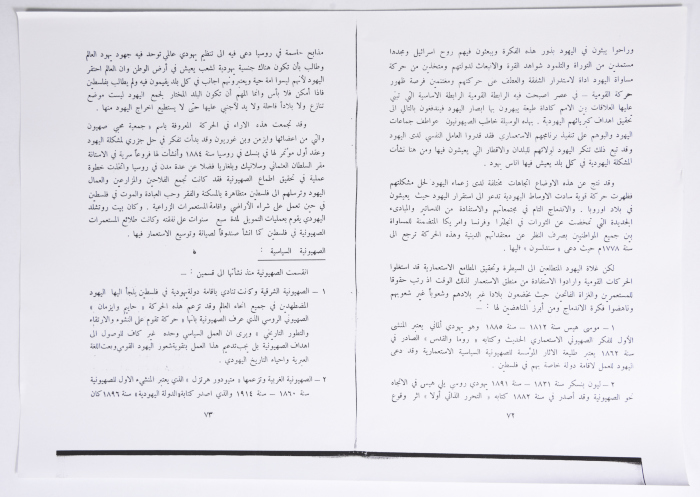 وراحوا يبثون في اليهود بذور هذه الفكرة ويبعثون فيهم روح اسرائيل ومجدها
مستمدين من التوراة والتلمود شواهد القوة والانبعاث لدولتهم ومتخذين من حركة
مساواة اليهود اداة لاستدرار الشفقة والعطف على حركتهم ومغتنمين فرصة ظهور
حركة القومية ـ في عصر اصبحت فيه الرابطة القومية الرابطة الاساسية التي تبنى
عليها العلاقات بين الامم كأداة طيعة يبهرون بها ابصار اليهود فيندفعون بالتالي الى
تحقيق اهداف كبريائهم اليهودية . بهذه الوسيلة خاطب الصهيونيون عواطف جماعات
اليهود والبوهم على تنفيذ برنامجهم الاستعماري فلقد قدروا العامل النفسي لدى اليهود
وقد تبع ذلك تنكر اليهود لولائهم للبلدان والاقطار التي يعيشون فيها ومن هنا نشأت
المشكلة اليهودية في كل بلد يعيش فيها اناس يهود .
وقد نتج عن هذه الاوضاع اتجاهات مختلفة لدى زعماء اليهود لحل مشكلتهم
فظهرت حركة قوية سادت الاوساط اليهودية تدعو الى استقرار اليهود حيث يعيشون
في بلاد اوروبا . والاندماج التام في مجتمعاتهم والاستفادة من الدساتير والمبادىء
الجديدة التي تمخضت عن الثورات في انجلترا وفرنسا وامريكا المتضمنة للمساواة
بين جميع المواطنين بصرف النظر عن معتقداتهم الدينية وهذه الحركة ترجع الى
سنة ١٧٧٨م حيث دعى « مندلسون » اليها .
لكن غلاة اليهود المتطلعين الى السيطرة وتحقيق المطامع الاستعمارية قد استغلوا
الحركات القومية وارادوا الاستفادة من منطق الاستعمار لذلك الوقت اذ رتب حقوقا
للمستعمرين والغزاة الفاتحين حيث يخضعون بلادا غير بلادهم وشعوباً غير شعوبهم
وناهضوا فكرة الاندماج ومن أبرز المناهضين لها : ـ
١ ـ موسى هيس سنة ١٨١٢ ـ سنة ١٨٨٥ وهو يهودي ألماني يعتبر المنشىء
الأول للفكر الصهيوني الاستعماري الحديث وكتابه « روما والقدس » الصادر في
سنة ١٨٦٢ يعتبر طليعة الاثار المؤسسة للصهيونية السياسية الاستعمارية وقد دعى
اليهود للعمل لاقامة دولة خاصة بهم في فلسطين .
٢ ـ ليون بنسكر سنة ١٨٢١ ـ سنة ١٨٩١ يهودي روسي يلي هيس في الاتجاه
نحو الصهيونية وقد أصدر في سنة ١٨٨٢ كتابه « التحرر الذاتي أولا » اثر وقوع
٧٢
مذابح حاسمة في روسيا دعى فيه الى تنظيم يهودي عالمي توحد فيه جهود يهود العالم
وطالب بأن تكون هناك جنسية يهودية لشعب يعيش في أرض الوطن وان العالم احتقر
اليهود لأنهم ليسوا امة حية ويعتبرونهم اجانب في كل بلد يقيمون فيه ولم يطالب بفلسطين
فاذا أمكن فلا بأس وانما المهم أن تكون البلد المختار لجميع اليهود ليست موضع
تنازع ولا بلاداً قاحلة ولا يد لأجنبي عليها حتى لا يستطيع اخراج اليهود منها .
وقد تجمعت هذه الآراء في الحركة المعروفة باسم « جمعية محبي صهيون
والتي من اعضائها وايزمن وبن غوريون وقد بدأت تفكر في حل جزري لمشكلة اليهود
وعقد أول مؤتمر لها في بنسك في روسيا سنة ١٨٨٤ وأنشأت لها فروعاً سرية في الاستانة
مقر السلطان العثماني وسلانيك وبلغاريا فضلا عن عدة مدن في روسيا واتخذت خطوة
عملية في تحقيق اطماع الصهيونية فقد كانت تجمع الفلاحين والمزارعين والعمال
اليهود وترسلهم الى فلسطين متظاهرة بالمسكنة والفقر وحب العبادة والموت في فلسطين
في حين تعمل على شراء الأراضي واقامة المستعمرات الزراعية . وكان بيت روتشلد
اليهودي يقوم بعمليات التمويل لمدة سبع سنوات على نفقته وكانت طلائع المستعمرات
الصهيونية في فلسطين كما انشأ صندوقاً لصيانة وتوسيع الاستعمار فيها .
الصهيونية السياسية :
انقسمت الصهيونية منذ نشأتها الى قسمين : ـ
١ ـ الصهيونية الشرقية وكانت تنادي باقامة دولة يهودية في فلسطين يلجأ اليها اليهود
المضطهدين في جميع انحاء العالم وقد تزعم هذه الحركة « حاييم وايزمان »
الصهيوني الروسي الذي عرف الصهيونية بأنها « حركة تقوم على النشوء والارتقاء
والتطور التاريخي » ويرى ان العمل السياسي وحده غير كاف للوصول الى
اهداف الصهيونية بل يجب تدعيم هذا العمل بتقوية شعور اليهود القومي وبعث اللغة
العبرية واحياء التاريخ اليهودي .
٢ ـ الصهيونية الغربية وتزعمها « تيودور هرتزل » الذي يعتبر المنشىء الاول للصهيونية
سنة ١٨٦٠ ـ سنة ١٩١٤ والذي اصدر كتابة «الدولة اليهودية» سنة ١٨٩٦ كان
٧٣